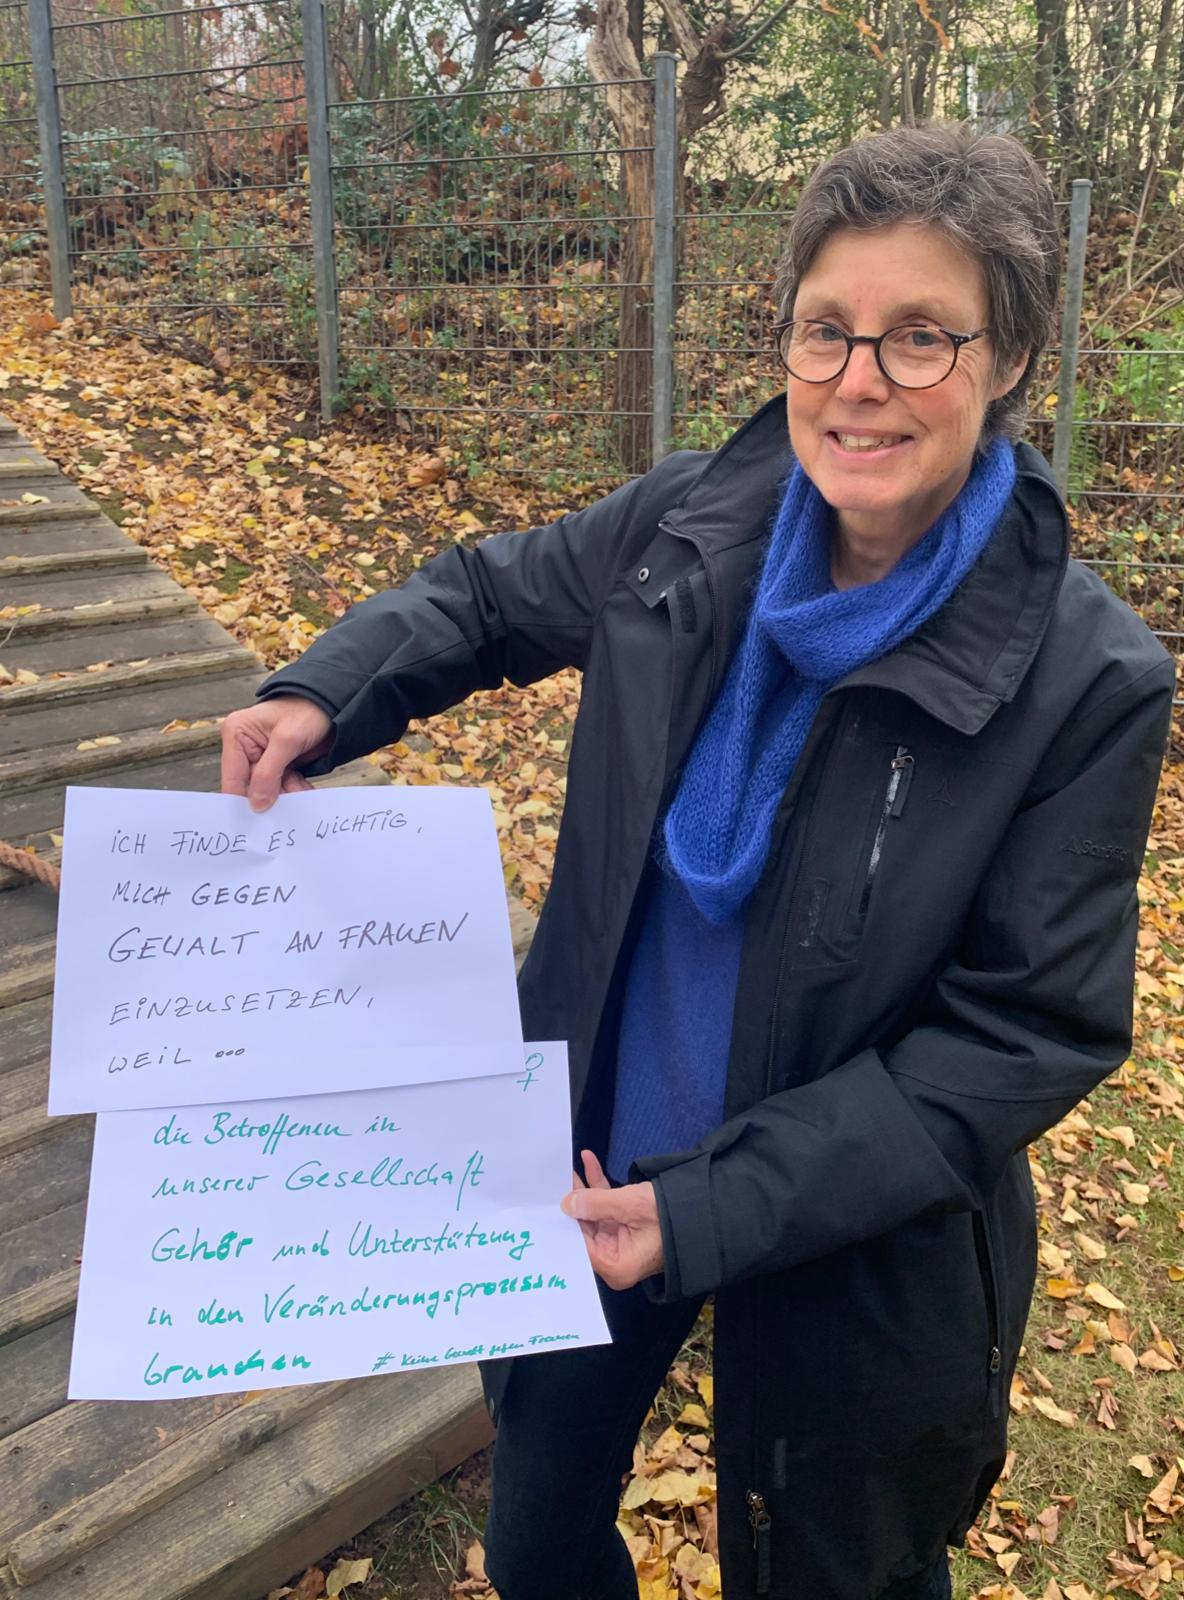 ICH FINDE ES WICHTIG,
MICH GEGEN
GEWALT AN FRAUEN
EINZUSETZEN,
WEIL ...
♀
die Betroffenen in
unserer Gesellschaft
Gehör und Unterstützung
in den Veränderungsprozessen
brauchen
# Keine Gewalt gegen Frauen
Schöffel